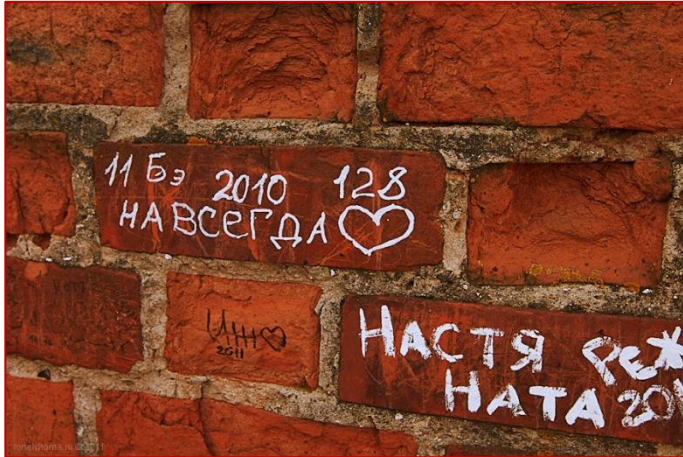 11 Бэ 2010 128
НАВСЕГДА
2011
НАСТЯ РЕЖ
НАТА 201